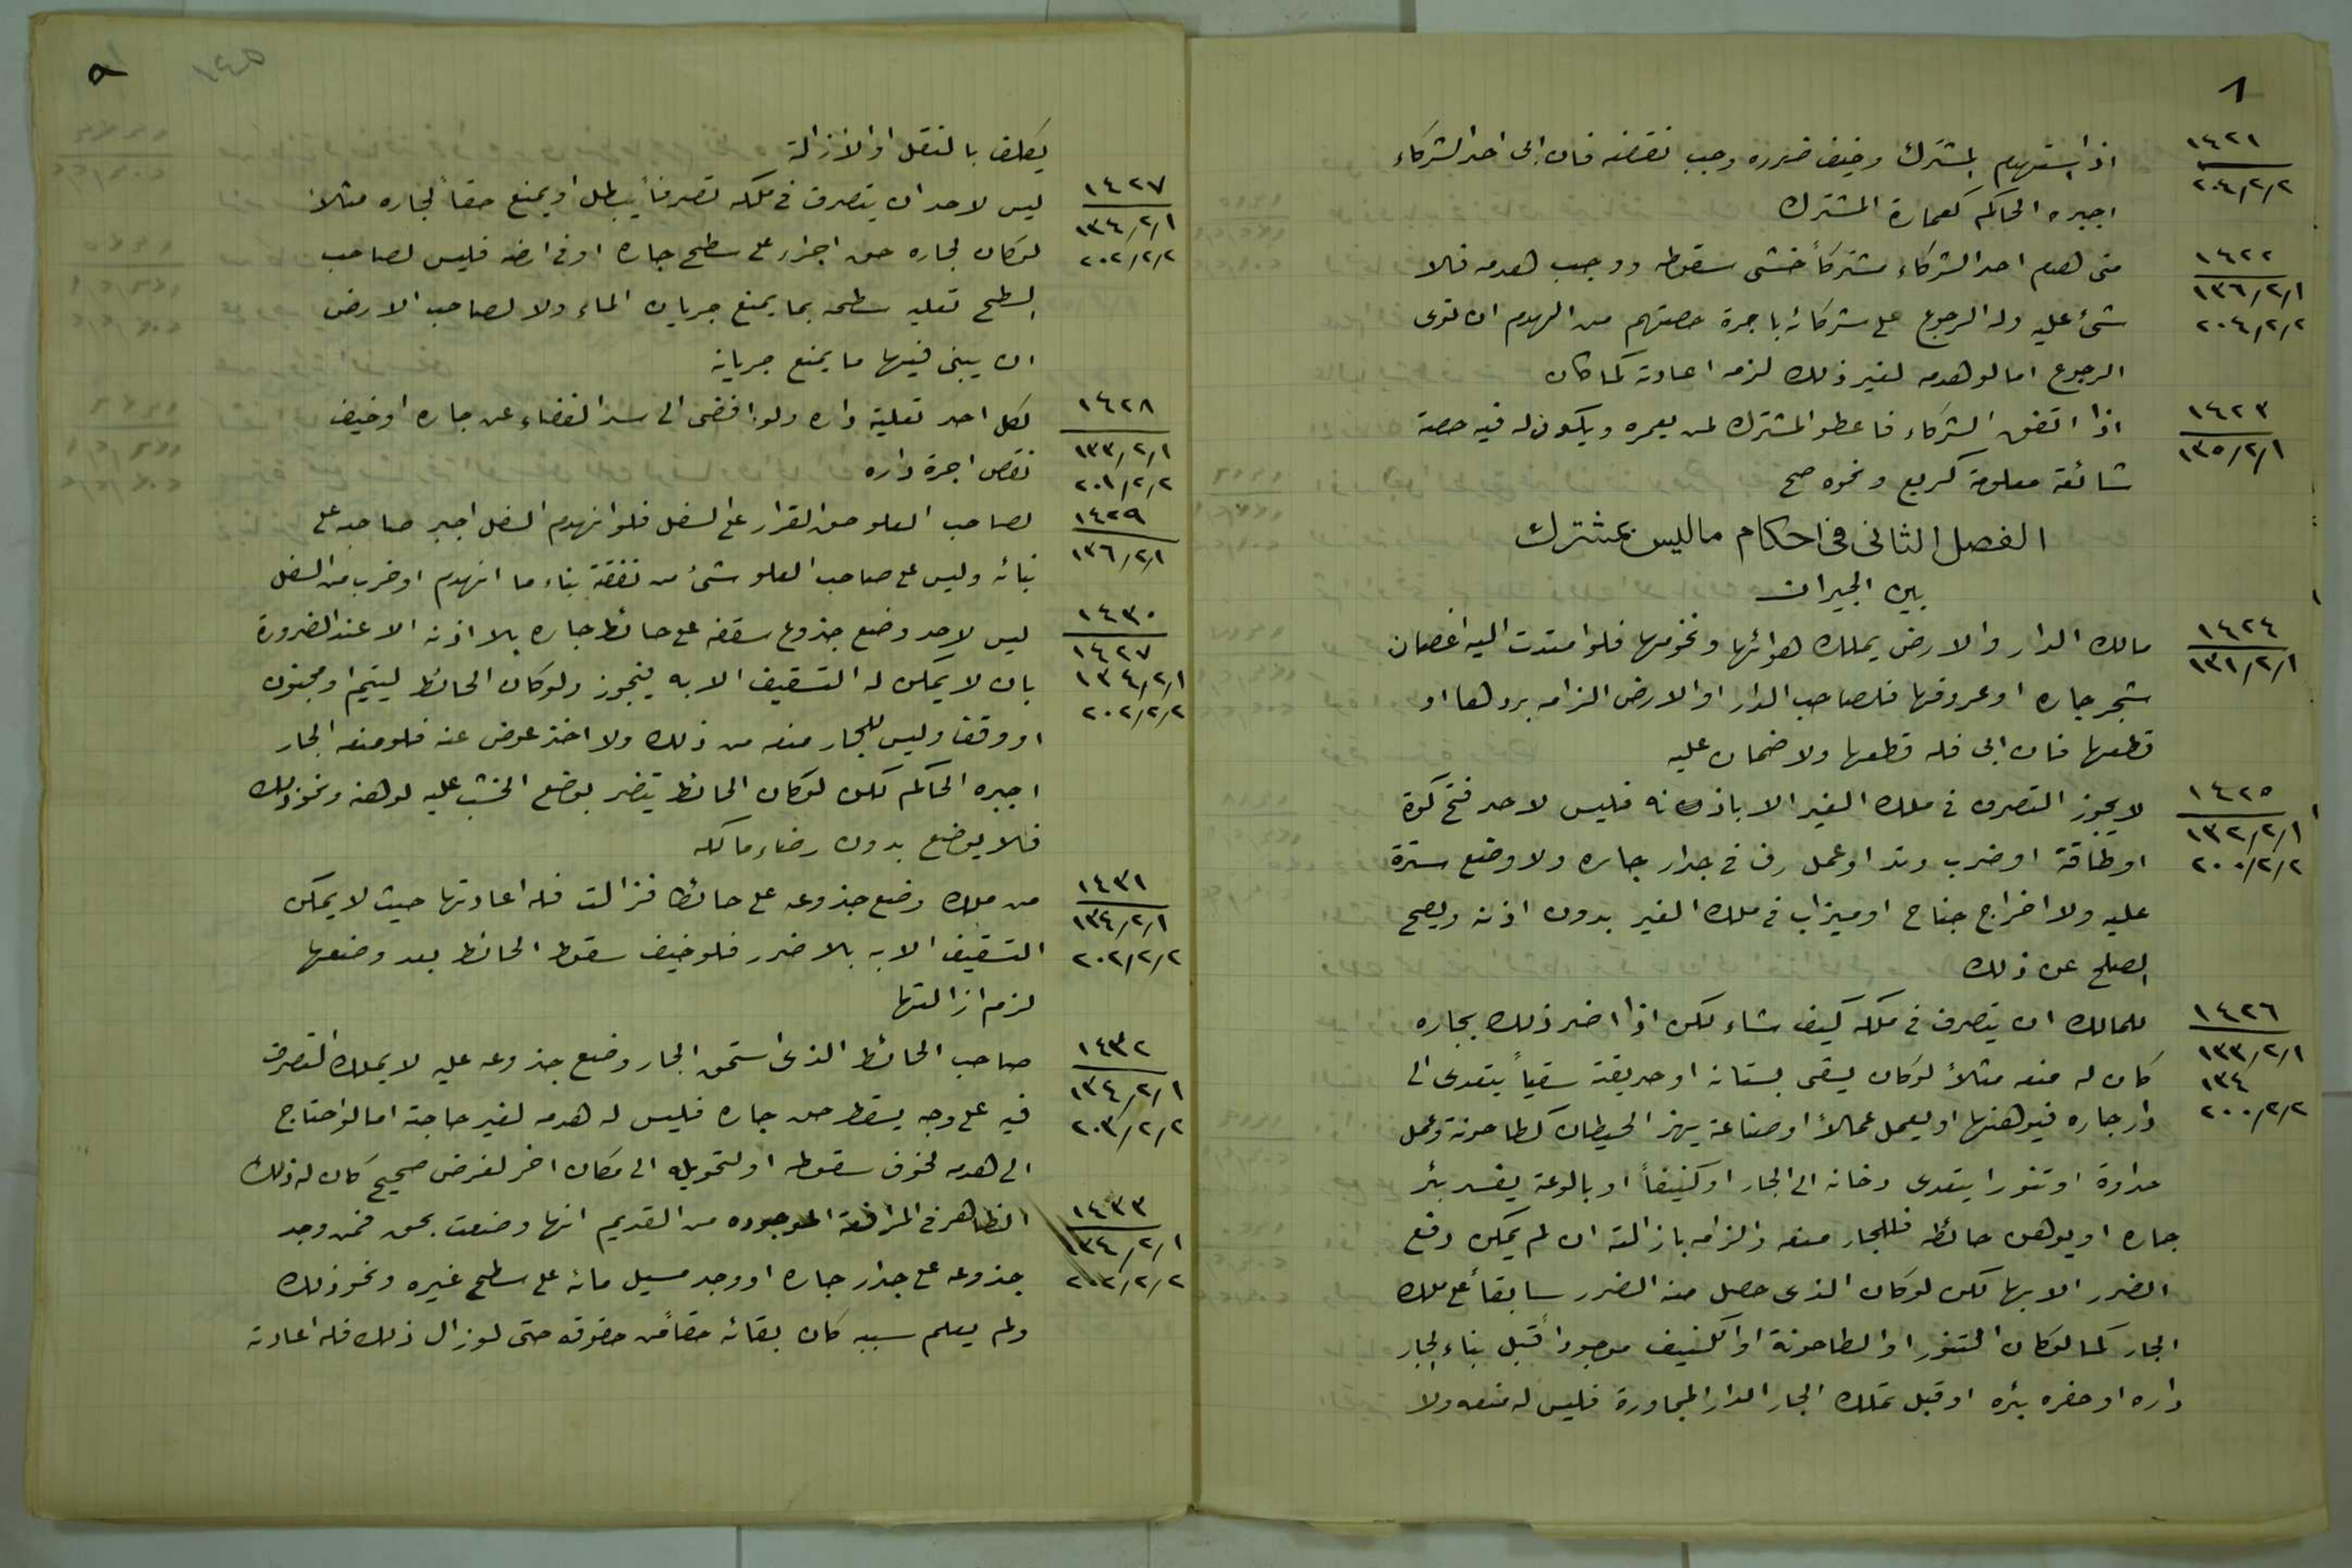 ٨
١٤٢١
٢٠٤/٢/٢
اذا استهدم المشترك وخيف ضرره وجب نقضه فان ابى احد الشركاء
اجبره الحاكم كعمارة المشترك
١٤٢٢
١٣٦/٢/١
٢٠٤/٢/٢
متى هدم احد الشركاء مشتركاً خشى سقوطه ووجب هدمه فلا
شئ عليه وله الرجوع على شركائه باجرة حصتهم من الهدم ان نوى
الرجوع اما لو هدمه لغير ذلك لزمه اعادته كما كان
١٤٢٣
١٣٥/٢/١
اذا اتفق الشركاء فاعطو المشترك لمن يعمره ويكون له فيه حصة
شائعة معلومة كربع ونحوه صح
الفصل الثانى فى احكام ما ليس بمشترك
بين الجيران
١٤٢٤
١٣١/٢/١
مالك الدار والارض يملك هوائها وتخومها فلو امتدت اليه اغصان
شجر جاره او عروقها فلصاحب الدار او الارض الزامه بردها او
قطعها فان ابى فله قطعها ولا ضمان عليه
١٤٢٥
١٣٢/٢/١
٢٠٠/٢/٢
لا يجوز التصرف فى ملك الغير الا باذنه فليس لاحد فتح كوة
او طاقة او ضرب وتد او عمل رف فى جدار جاره ولا وضع سترة
عليه ولا اخراج جناح او ميزاب فى ملك الغير بدون اذنه ويصح
الصلح عن ذلك
١٤٢٦
١٣٣/٢/١
١٣٤
٢٠٠/٢/٢
للمالك ان يتصرف فى ملكه كيف شاء لكن اذا اضر ذلك بجاره
كان له منعه مثلاً لو كان يسقى بستانه او حديقته سقياً يتعدى الى
دار جاره فيوهنها او يعمل عملاً او صناعة يهز الحيطان كطاحونة وعمل
حدادة او تنورا يتعدى دخانه الى الجار او كنيفاً او بالوعة يفسد بئر
جاره او يوهن حائطه فللجار منعه والزامه بازالته ان لم يمكن دفع
الضرر الا بها لكن لو كان الذى حصل منه الضرر سابقاً على ملك
الجار كما لو كان التنور او الطاحونة او الكنيف موجوداً قبل بناء الجار
داره او حفره بئره او قبل تملك الجار الدار المجاورة فليس له منعه ولا
يكلف بالنقل او الازالة
١٤٢٧
١٣٤/٢/١
٢٠٢/٢/٢
ليس لاحد ان يتصرف فى ملكه تصرفاً يبطل او يمنع حقاً لجاره مثلاً
لو كان لجاره حق اجراء على سطح جاره او فى ارضه فليس لصاحب
السطح تعليه سطحه بما يمنع جريان الماء ولا لصاحب الارض
ان يبنى فيها ما يمنع جريانه
١٤٢٨
١٣٣/٢/١
٢٠١/٢/٢
لكل احد تعلية داره ولو افضى الى سد الفضاء عن جاره او خيف
نقص اجرة داره
١٤٢٩
١٣٦/٢/١
لصاحب العلو حق القرار على السفل فلو انهدم السفل اجبر صاحبه على
بنائه وليس على صاحب العلو شئ من نفقة بناء ما انهدم او خرب من السفل
١٤٣٠
١٤٢٧
١٣٤/٢/١
٢٠٢/٢/٢
ليس لاحد وضع جذوع سقفه على حائط جاره بلا اذنه الا عند الضرورة
بان لا يمكن له التسقيف الا به فيجوز ولو كان الحائط ليتيم او مجنون
او وقف وليس للجار منعه من ذلك ولا اخذ عوض عنه فلو منعه الجار
اجبره الحاكم لكن لو كان الحائط يتضرر بوضع الخشب عليه لوهنه ونحو ذلك
فلا يوضع بدون رضاء مالكه
١٤٣١
١٣٤/٢/١
٢٠٢/٢/٢
من ملك وضع جذوعه على حائط فزالت فله اعادتها حيث لا يمكن
التسقيف الا به بلا ضرر فلو خيف سقوط الحائط بعد وضعها
لزم ازالتها
١٤٣٢
١٣٤/٢/١
٢٠٣/٢/٢
صاحب الحائط الذى استحق الجار وضع جذوعه عليه لا يملك التصرف
فيه على وجه يسقط حق جاره فليس له هدمه لغير حاجة اما لو احتاج
الى هدمه لخوف سقوطه او لتحويله الى مكان اخر لغرض صحيح كان له ذلك
١٤٣٣
١٣٤/٢/١
٢٠٢/٢/٢
الظاهر فى المرافعة الموجوده من القديم انها وضعت بحق فمن وجد
جذوعه على جدار جاره او وجد مسيل مائه على سطح غيره ونحو ذلك
ولم يعلم سببه كان بقائه حقاً من حقوقه حتى لو زال ذلك فله اعادته